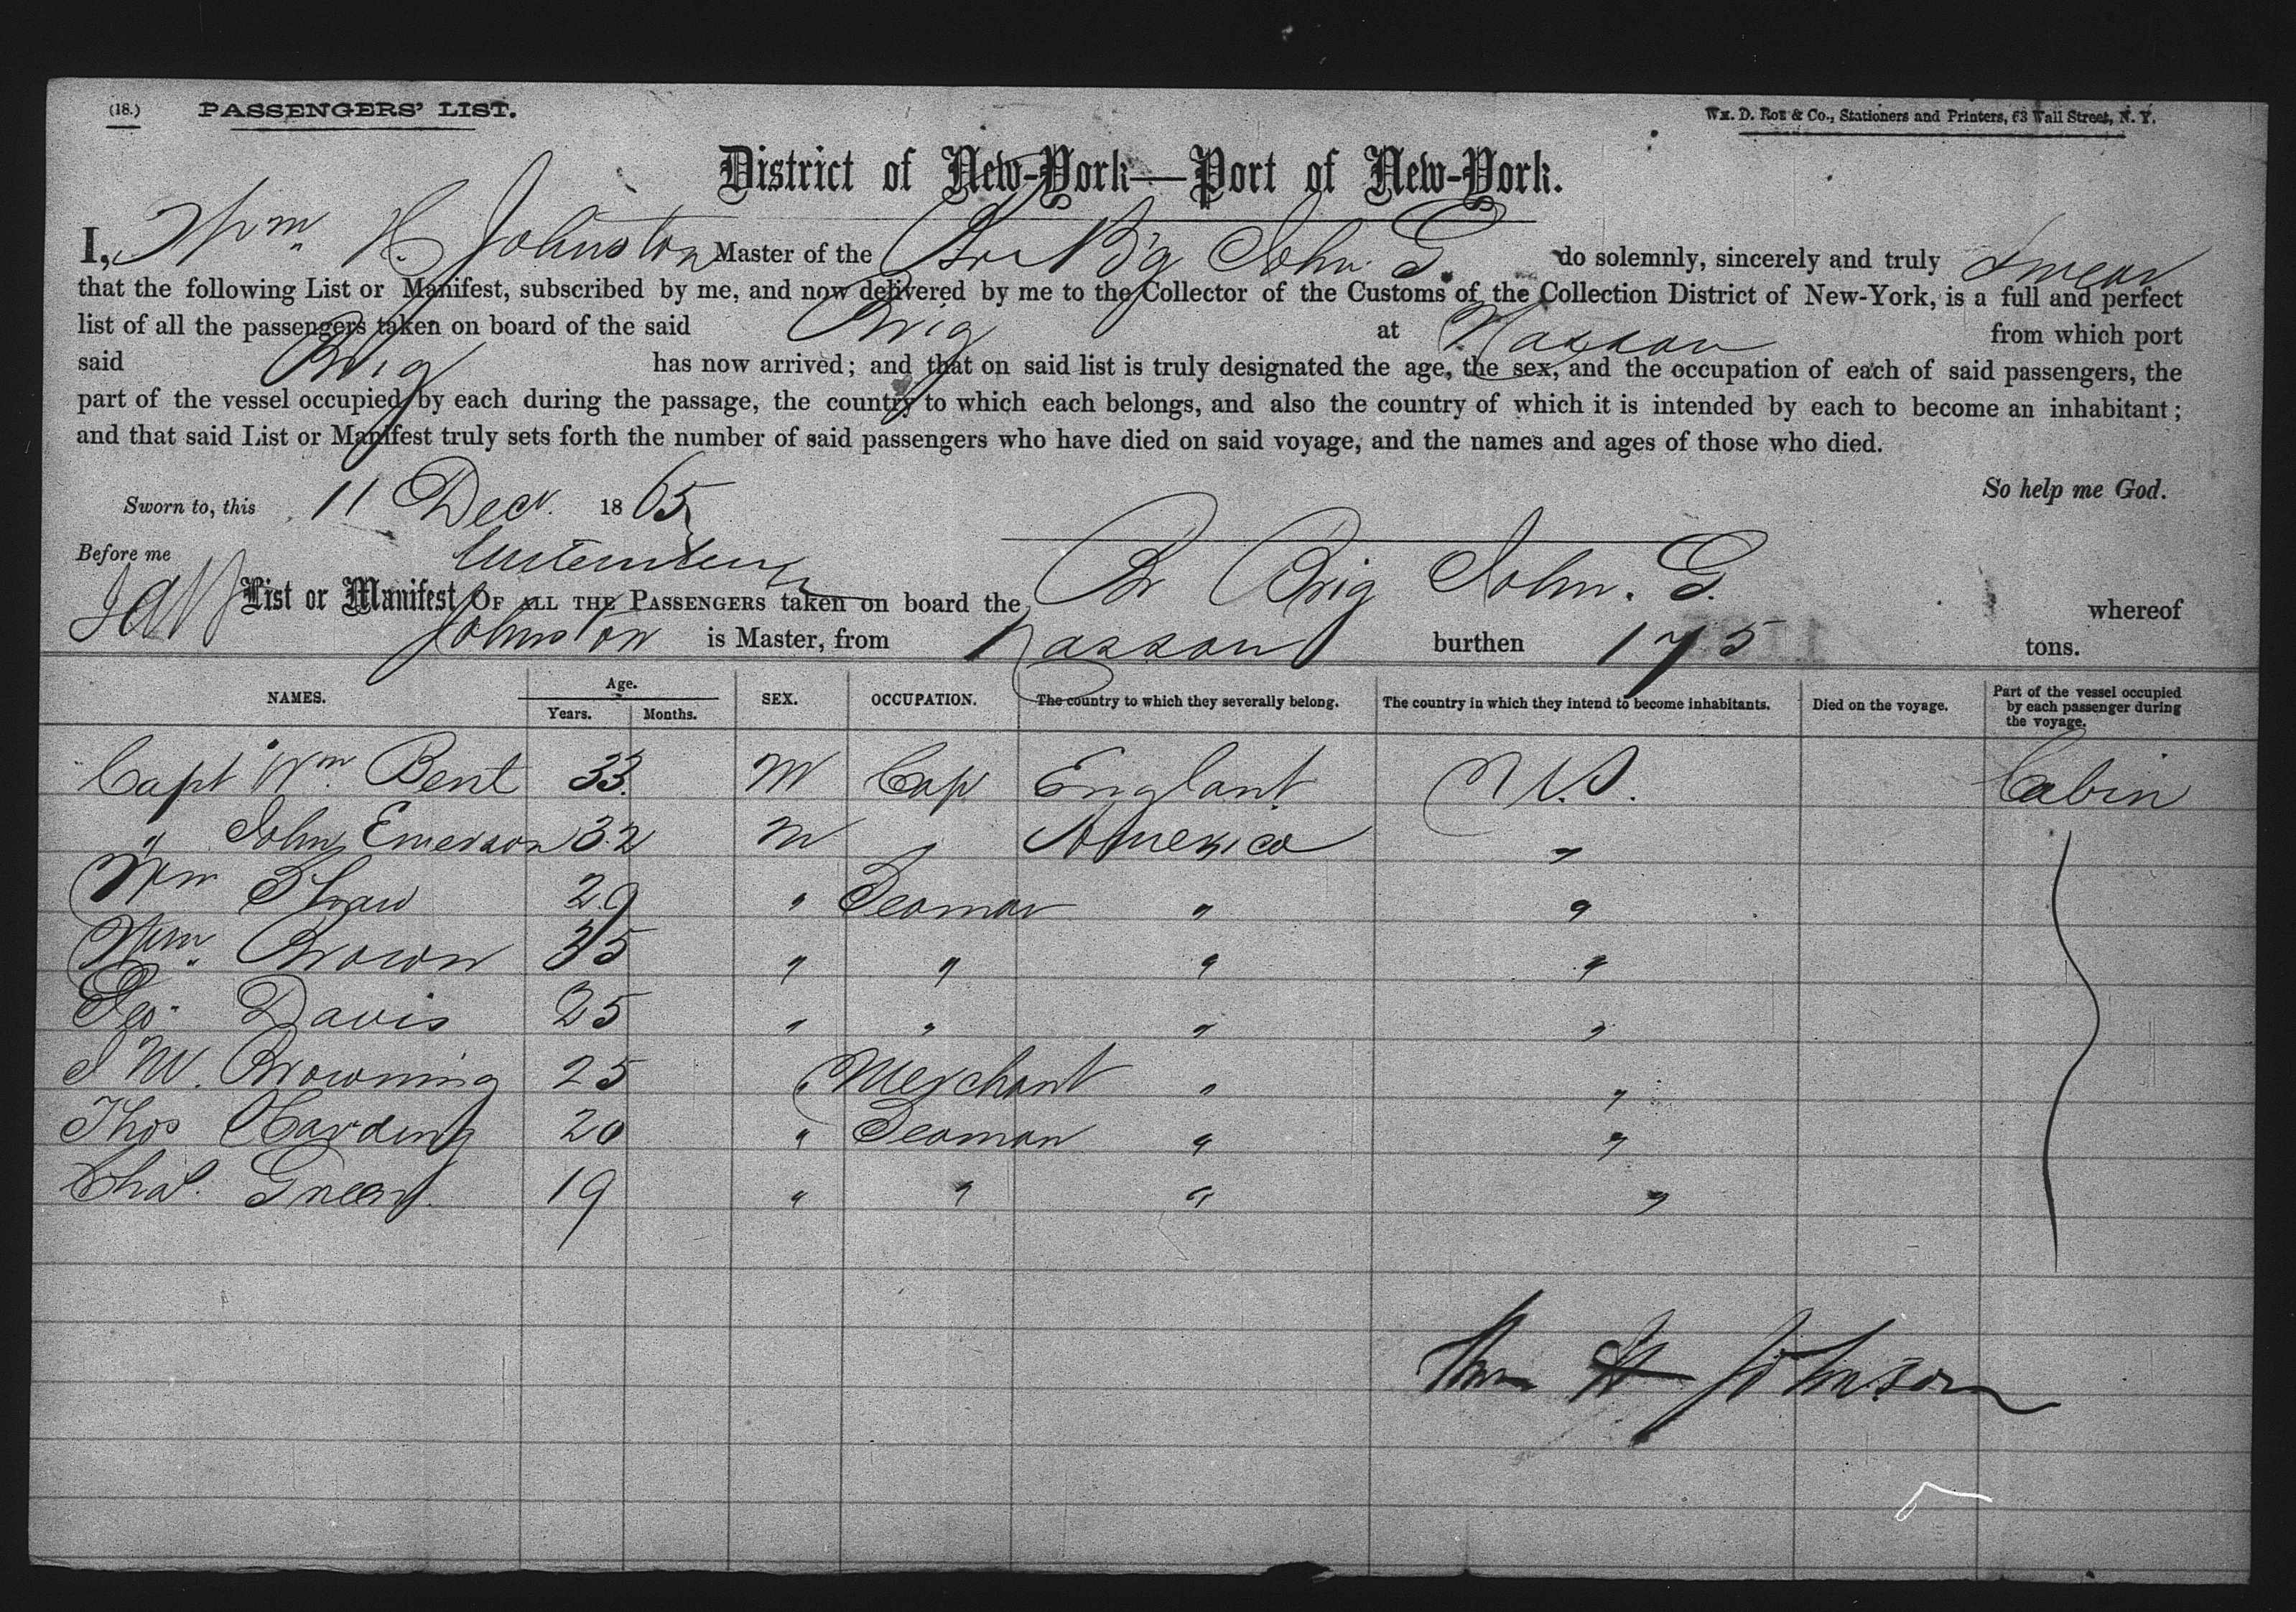 (18.) PASSENGERS' LIST. Wm. D. Roe & Co., Stationers and Printers, 63 Wall Street, N. Y.
District of New-York—Port of New-York.
I, Wm H. Johnston Master of the Br Big John G. do solemnly, sincerely and truly swear
that the following List or Manifest, subscribed by me, and now delivered by me to the Collector of the Customs of the Collection District of New-York, is a full and perfect
list of all the passengers taken on board of the said Brig at Nassau from which port
said Brig has now arrived; and that on said list is truly designated the age, the sex, and the occupation of each of said passengers, the
part of the vessel occupied by each during the passage, the country to which each belongs, and also the country of which it is intended by each to become an inhabitant;
and that said List or Manifest truly sets forth the number of said passengers who have died on said voyage, and the names and ages of those who died.
So help me God.
Sworn to, this 11 Decr. 1865
Before me
List or Manifest OF ALL THE PASSENGERS taken on board the Br Brig John. G. whereof
Johnston is Master, from Nassau burthen 175 tons.
NAMES. Age. Years. Months. SEX. OCCUPATION. The country to which they severally belong. The country in which they intend to become inhabitants. Died on the voyage. Part of the vessel occupied by each passenger during the voyage.
Capt Wm. Bent 33. M Cap England U.S. Cabin
" John Emerson 32 M " America "
Wm Shaw 29 " Seaman " "
Wm. Brown 35 " " " "
Geo. Davis 25 " " " "
J W. Browning 25 " Merchant " "
Thos Harding 20 " Seaman " "
Chas. Green. 19 " " " "
Wm H Johnson